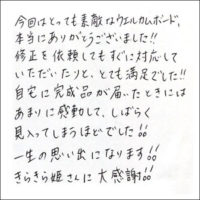 今回はとっても素敵なウエルカムボード、
本当にありがとうございました!!
修正を依頼してもすぐに対応して
いただいたりと、とても満足でした!!
自宅に完成品が届いたときには
あまりに感動して、しばらく
見入ってしまうほどでした!!
一生の思い出になります!!
きらきら姫さんに大感謝!!